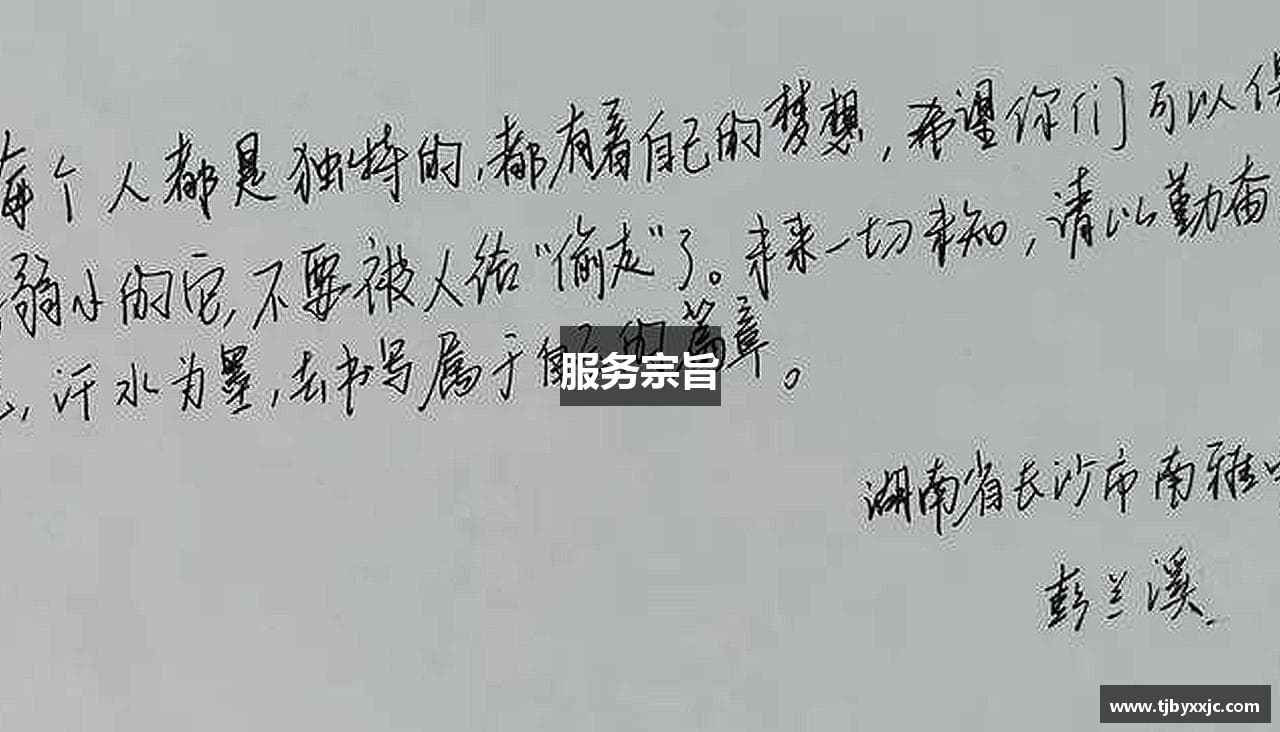 每个人都是独特的,都有着自己的梦想,希望你们可以保
弱小的它,不要被人给“偷走”了。未来一切未知,请以勤奋
,汗水为墨,去书写属于自己的篇章。
服务宗旨
湖南省长沙市南雅
彭兰溪
www.tjbyxxjc.com